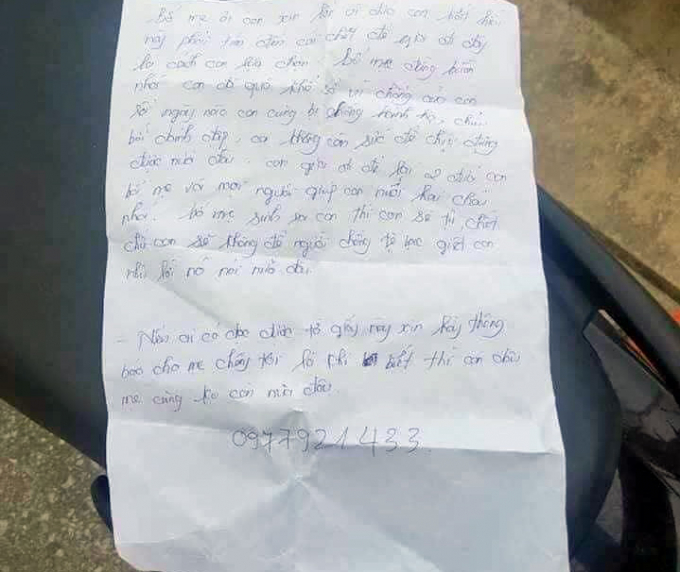 Bố mẹ ơi con xin lỗi vì đứa con bất hiếu
này phải tìm đến cái chết để giải đi đây
là cách con lựa chọn. Bố mẹ đừng buồn
nhé. con đã quá khổ sở vì chồng của con
rồi ngày nào con cũng bị chồng hành hạ, chửi
bới đánh đập, con không còn sức để chịu đựng
được nữa đâu. con giờ đi để lại 2 đứa con
bố mẹ và mọi người giúp con nuôi hai cháu
nhé. bố mẹ sinh ra con thì con sẽ tự chết
chứ con sẽ không để người chồng tệ bạc giết con
như lời nó nói nữa đâu.
- Nếu ai có đọc được tờ giấy này xin hãy thông
báo cho mẹ chồng tôi là khi biết thì con dâu
mẹ cũng ko còn nữa đâu.
0977921433